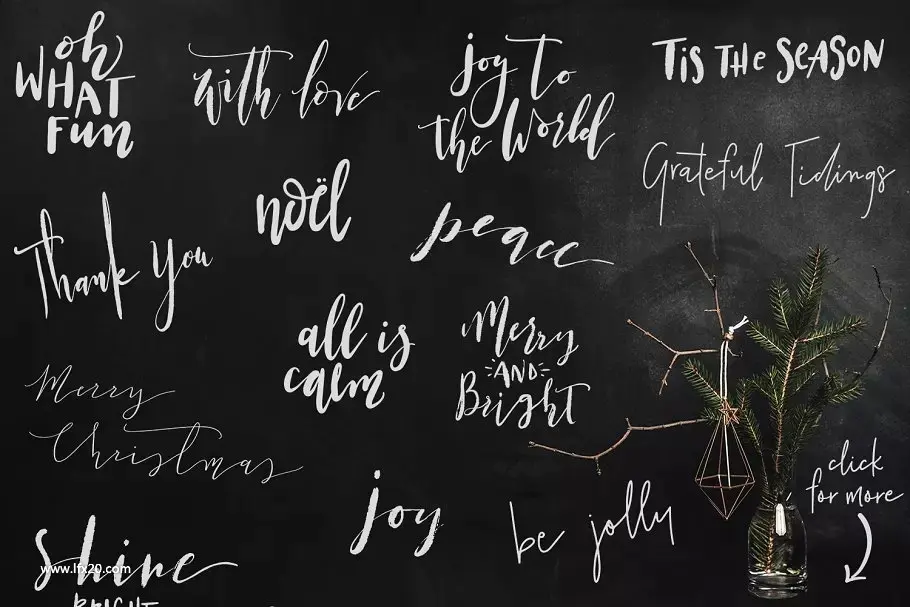 oh
WHAT
Fun
with love
joy to
the World
TIS THE SEASON
Grateful Tidings
noël
peace
thank you
all is
calm
Merry
AND
Bright
Merry
Christmas
joy
be jolly
click
for more
shine
www.lfx20.com
BRIGHT